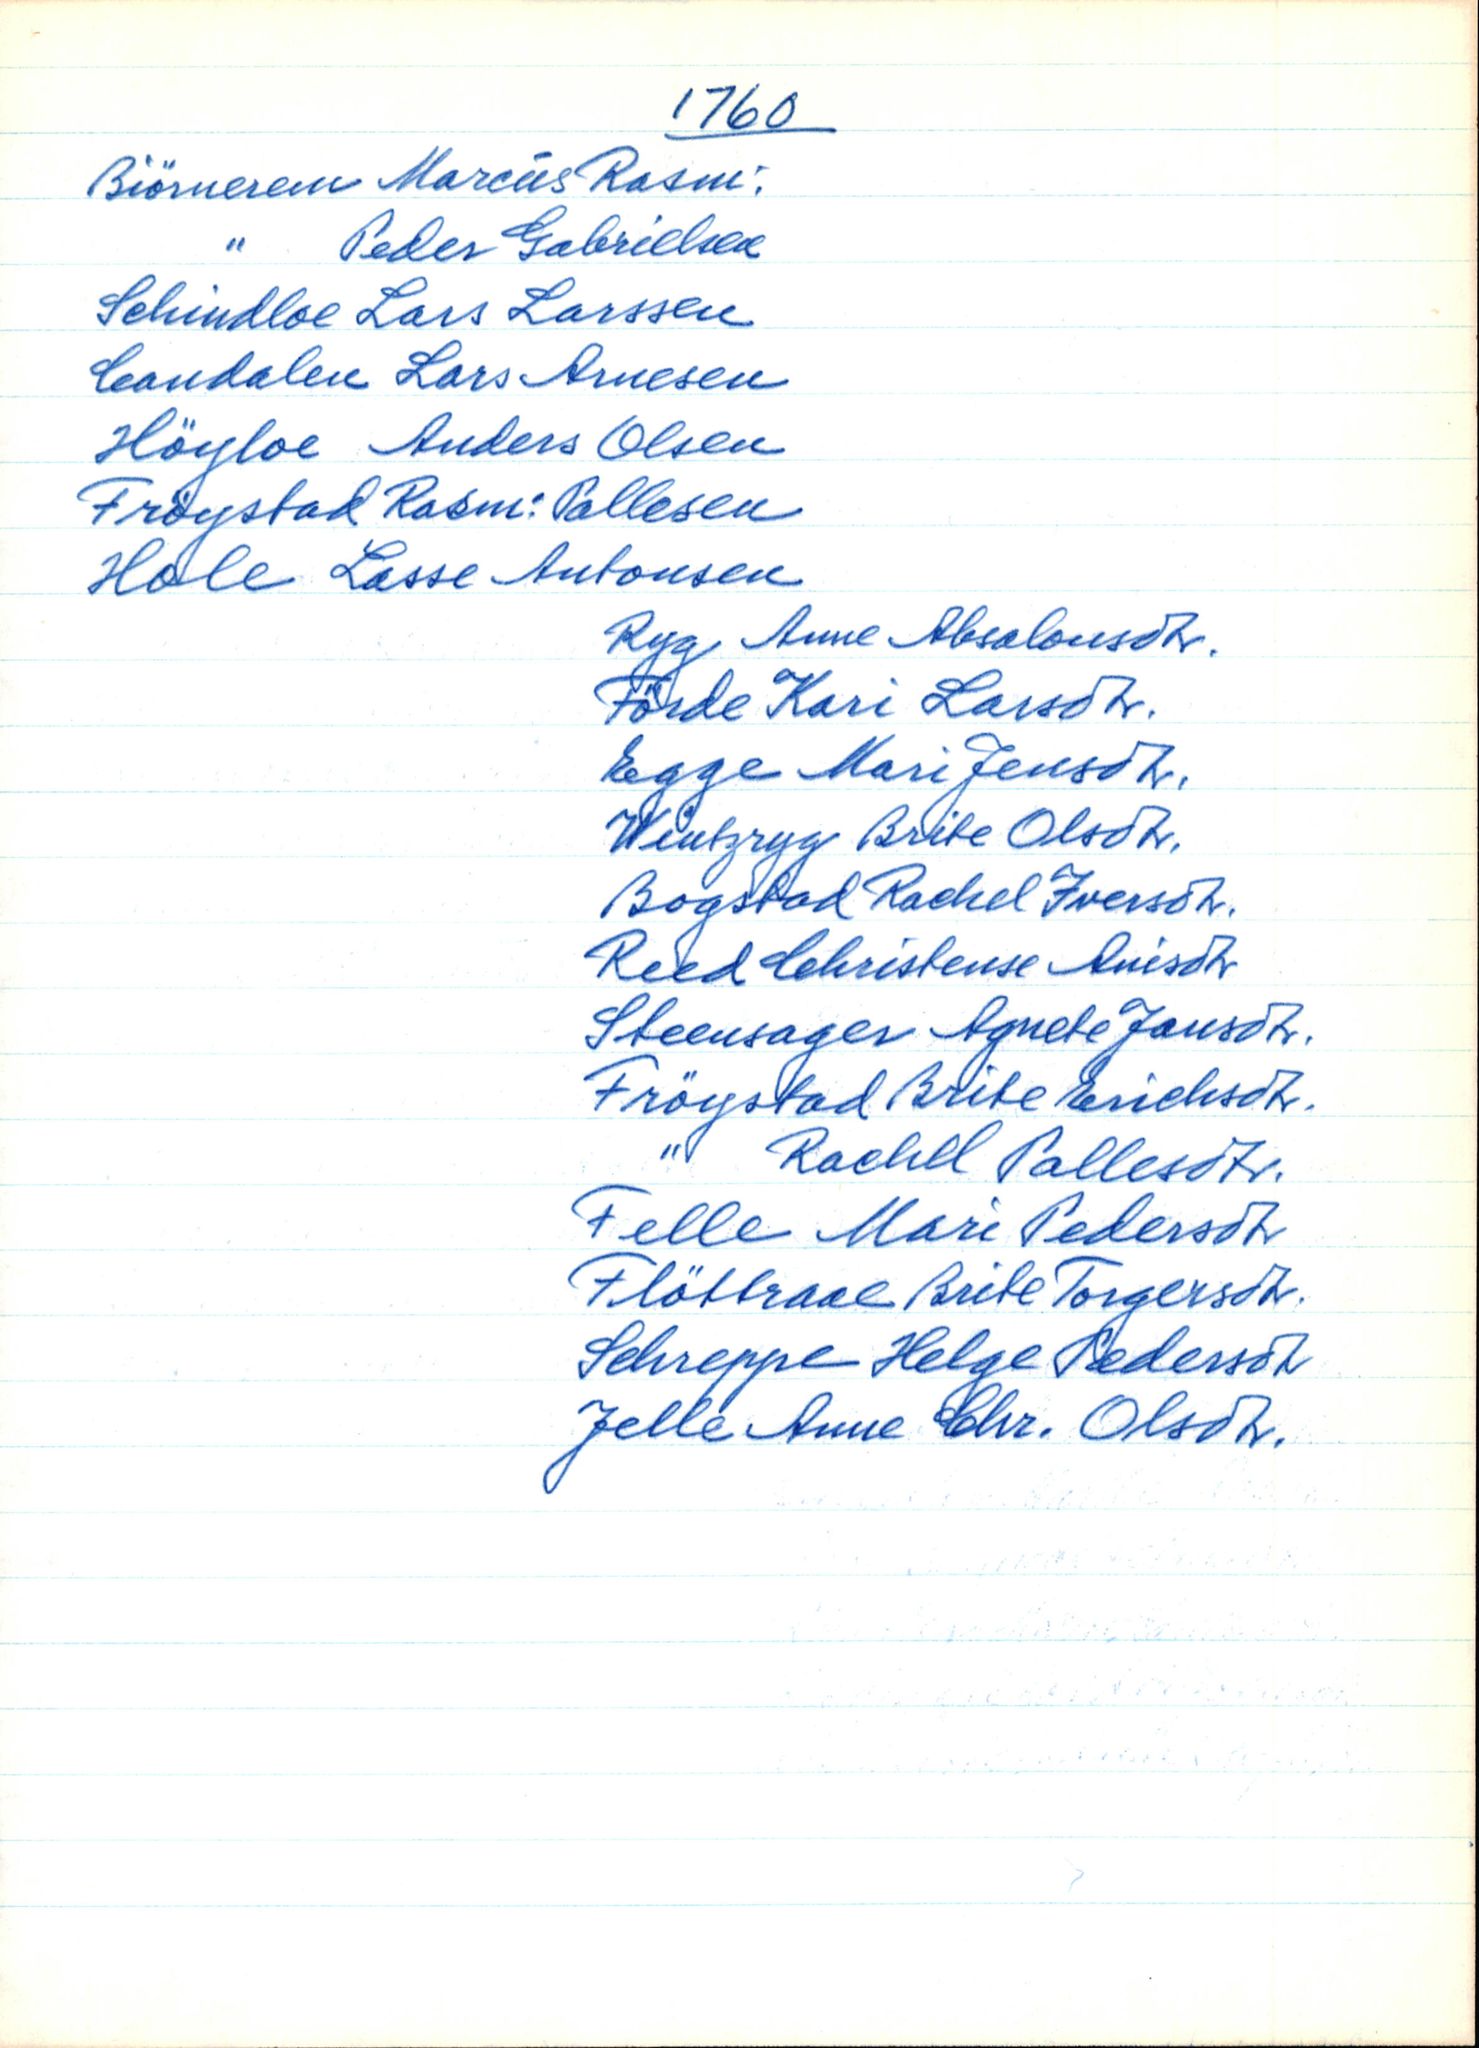 1760
Biörnerem Marcus Rasm:
" Peder Gabrielsen
Schindloe Lars Larssen
Candalen Lars Arnesen
Höyloe Anders Olsen
Fröystad Rasm: Pallesen
Hole Lasse Antonsen
Ryg Anne Absalonsdtr.
Förde Kari Larsdtr.
Egge Mari Jensdtr.
Wintzryg Brite Olsdtr.
Bogstad Rachel Iversdtr.
Reed Christense Anisdtr
Steensager Agnete Jansdtr.
Fröystad Brite Erichsdtr.
" Rachel Pallesdtr.
Felle Mari Pedersdtr
Flöttraae Brite Torgersdtr.
Schreppe Helge Pedersdtr
Jelle Anne Chr. Olsdtr.